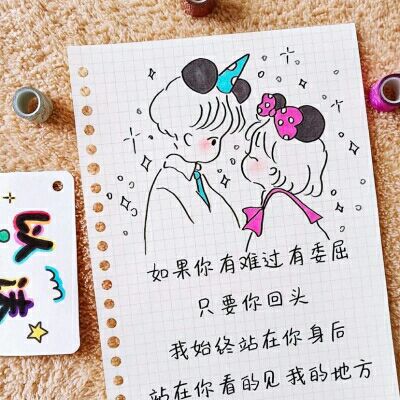 如果你有难过有委屈
只要你回头
我始终站在你身后
站在你看的见我的地方
以